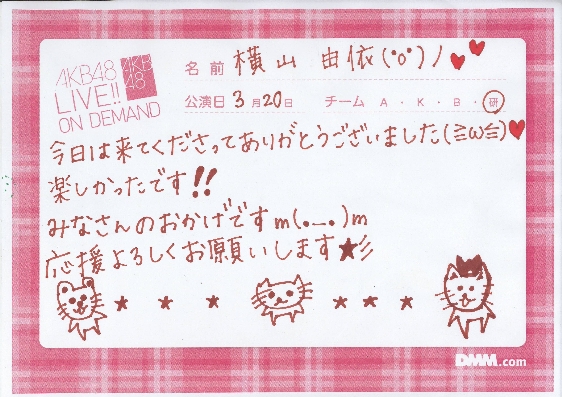 AKB48
LIVE!!
ON DEMAND
AKB
48
名前 横山 由依(°o°)ノ♥♥
公演日 3月20日 チーム A・K・B・研
今日は来てくださってありがとうございました(≧ω≦)♥
楽しかったです!!
みなさんのおかげですm(._.)m
応援よろしくお願いします★彡
DMM.com